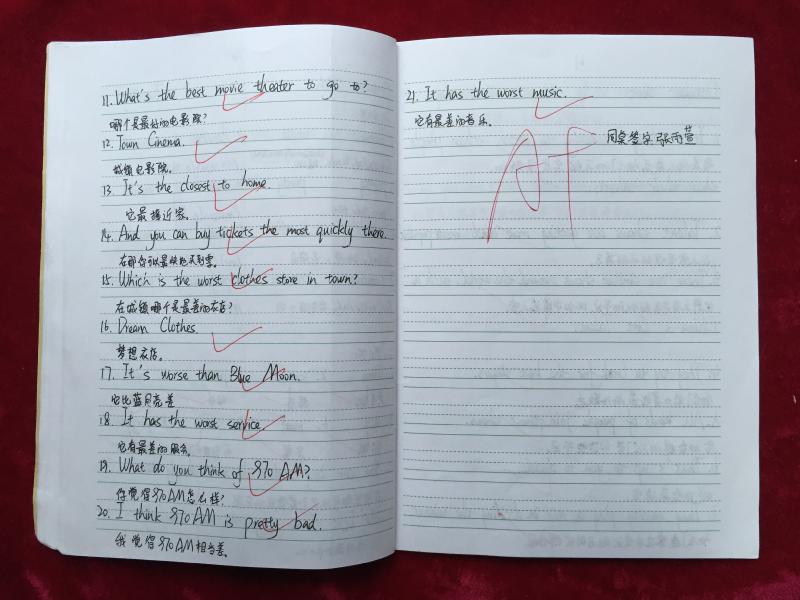 11. What's the best movie theater to go to?
哪个是最好的电影院?
12. Town Cinema.
城镇电影院。
13. It's the closest to home.
它最接近家。
14. And you can buy tickets the most quickly there.
在那你可以最快地买到票。
15. Which is the worst clothes store in town?
在城镇哪个是最差的衣店?
16. Dream Clothes.
梦想衣店。
17. It's worse than Blue Moon.
它比蓝月亮差
18. It has the worst service.
它有最差的服务。
19. What do you think of 970 AM?
你觉得970AM怎么样?
20. I think 970 AM is pretty bad.
我觉得970AM相当差。
21. It has the worst music.
它有最差的音乐。
A+
同桌签字 张雨萱